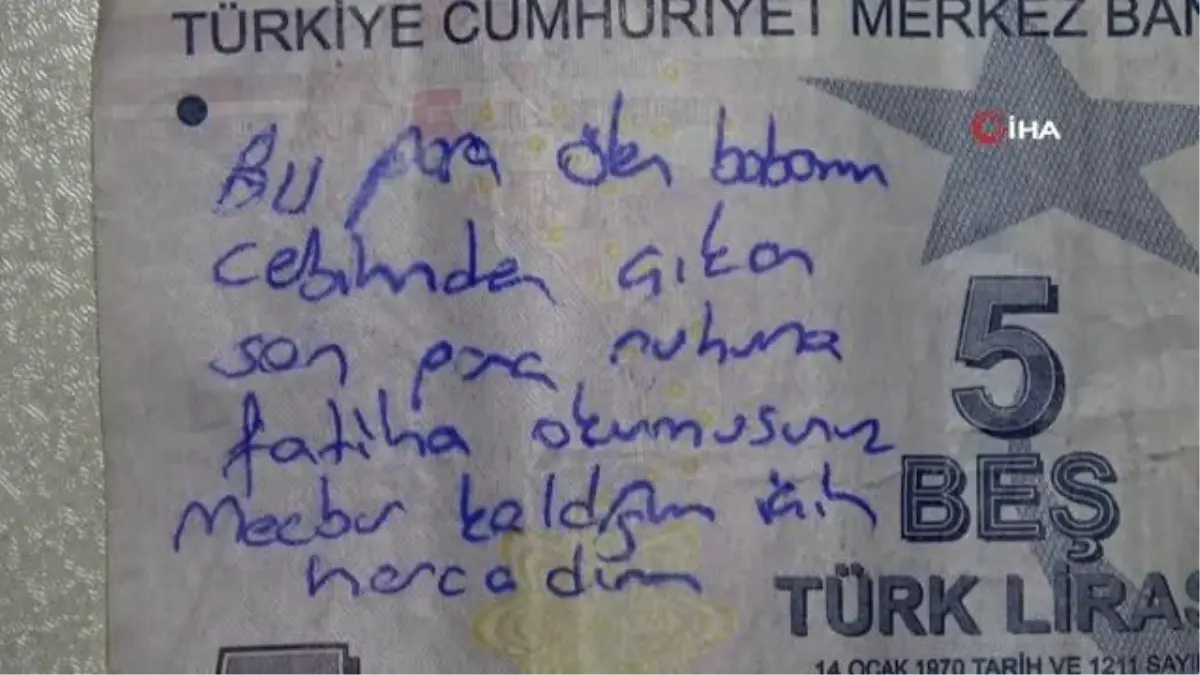 TÜRKİYE CUMHURİYET MERKEZ BAN
İHA
Bu para ölen babamın
cebinden çıkan
son para ruhuna
fatiha okurmusunuz
Mecbur kaldığım için
harcadım
5
BEŞ
TÜRK LİRAS
14 OCAK 1970 TARİH VE 1211 SAYI